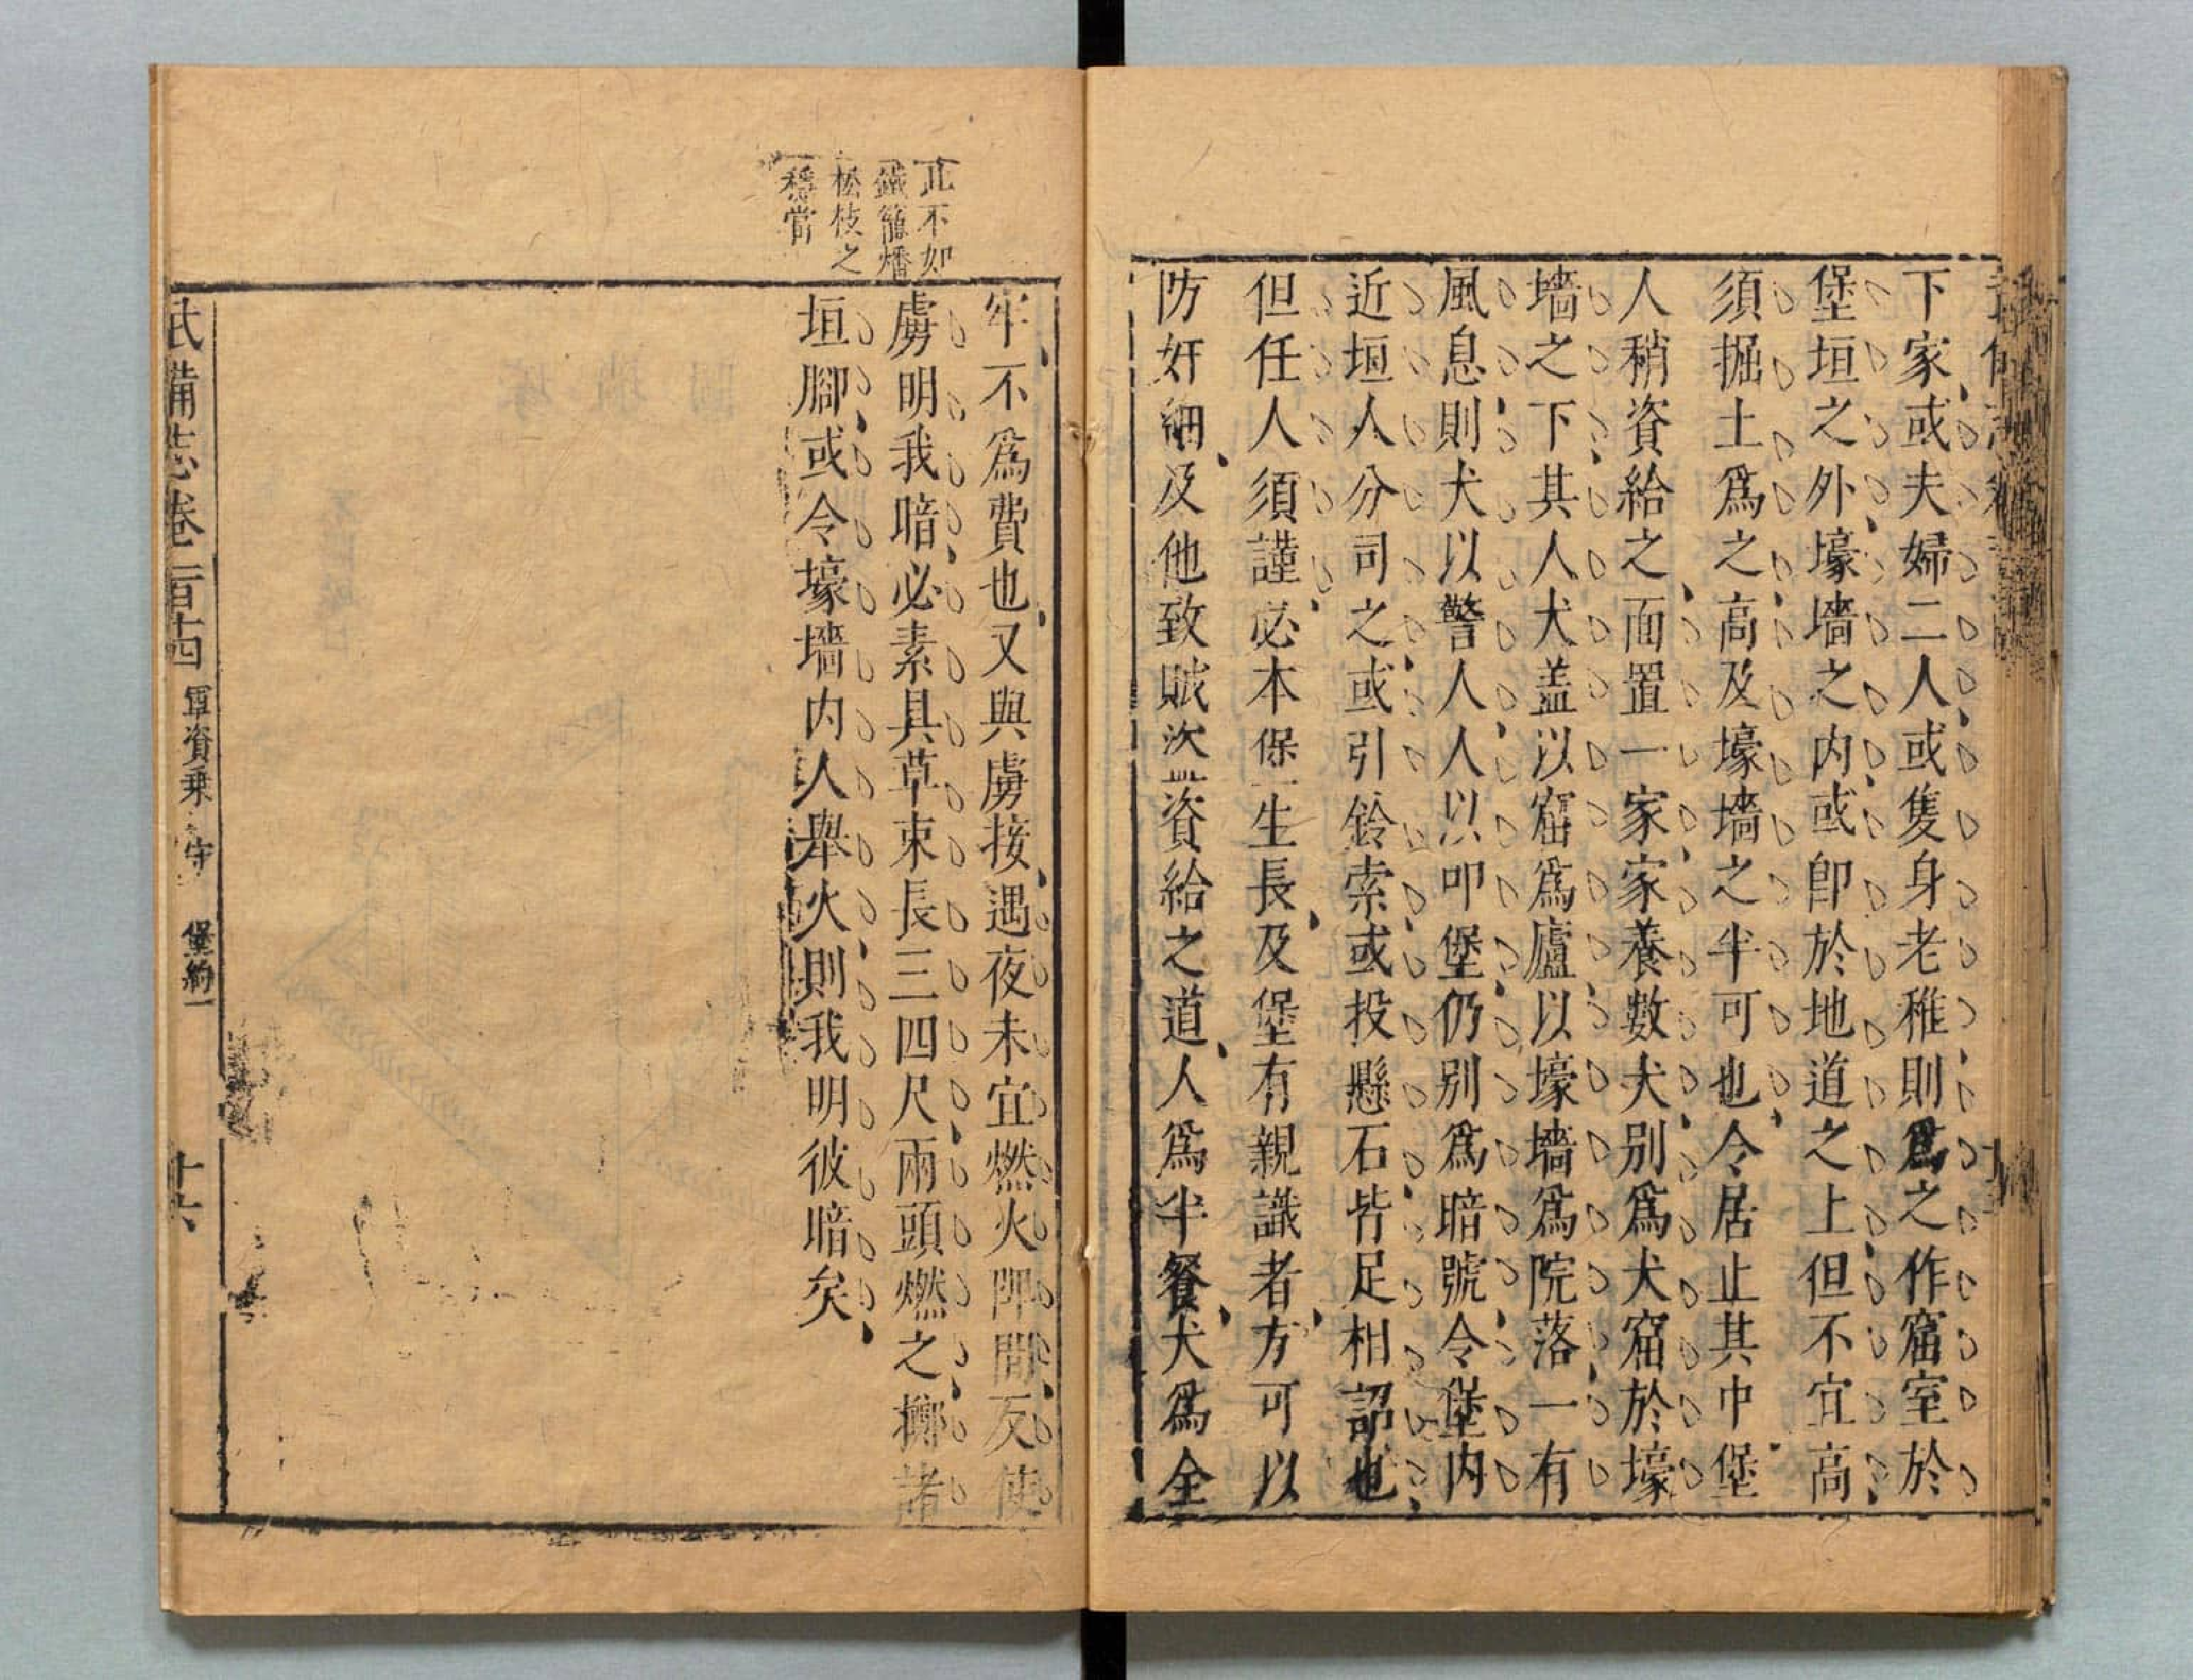 下家或夫婦二人或隻身老稚則爲之作窟室於
堡垣之外壕墻之内或卽於地道之上但不宜高
須掘土爲之高及壕墻之半可也令居止其中堡
人稍資給之面置一家家養數犬别爲犬窟於壕
墻之下其人犬盖以窟爲廬以壕墻爲院落一有
風息則犬以警人人以叩堡仍别爲暗號令堡内
近垣人分司之或引鈴索或投懸石皆足相詔也
但任人須謹必本保生長及堡有親識者方可以
防奸細及他致賊次資給之道人爲半餐犬爲全
牢不爲費也又與虜接遇夜未宜燃火陴間反使
虜明我暗必素具草束長三四尺兩頭燃之擲諸
垣腳或令壕墻内人舉火則我明彼暗矣
正不如
鐵籠燔
松枝之
穩當
武備志卷二百十四 軍資乘 守 堡約一 十六